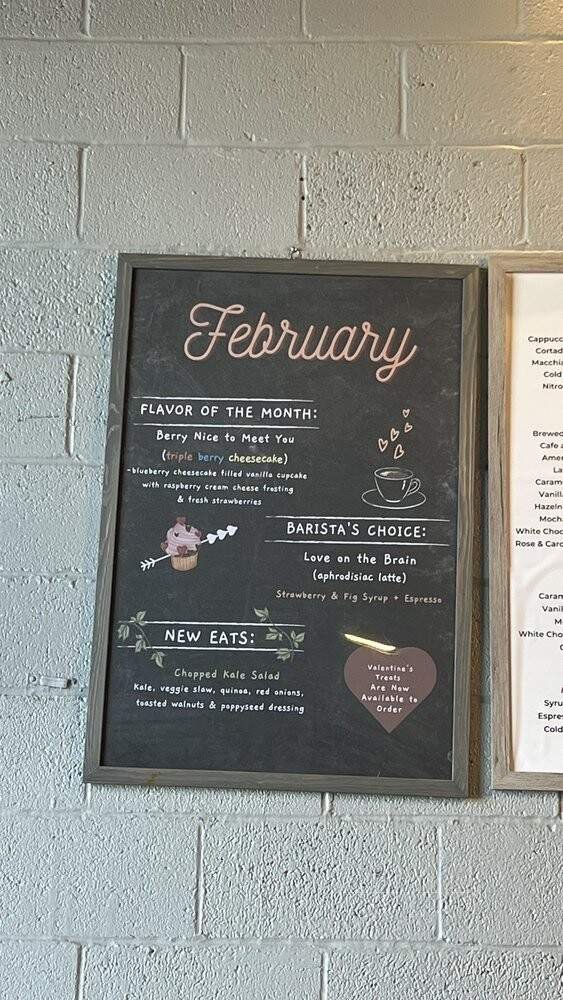 February
FLAVOR OF THE MONTH:
Berry Nice to Meet You
(triple berry cheesecake)
-blueberry cheesecake filled vanilla cupcake
with raspberry cream cheese frosting
& fresh strawberries
BARISTA'S CHOICE:
Love on the Brain
(aphrodisiac latte)
Strawberry & Fig Syrup + Espresso
NEW EATS:
Chopped Kale Salad
Kale, veggie slaw, quinoa, red onions,
toasted walnuts & poppyseed dressing
Valentine's
Treats
Are Now
Available to
Order
Cold
Nitro
White
Rose &
White
Cold